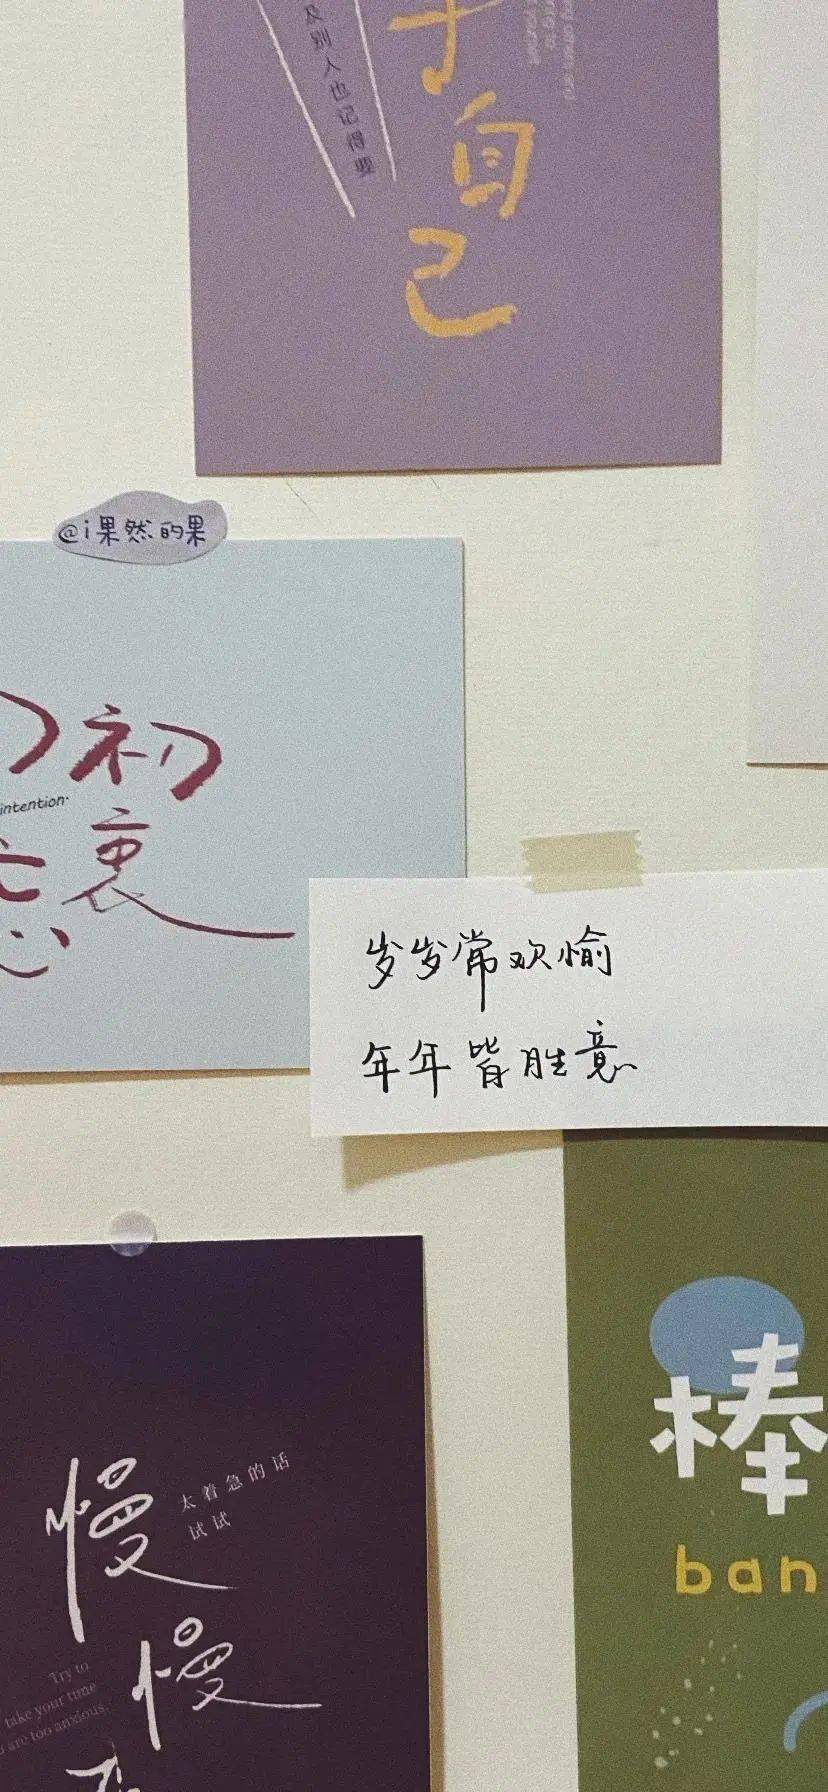 及别人也记得要
于自己
@i果然的果
初初
intention·
忘衷
岁岁常欢愉
年年皆胜意
慢
太着急的话
试试
慢
Try to
take your time
are too anxious.
棒
ban